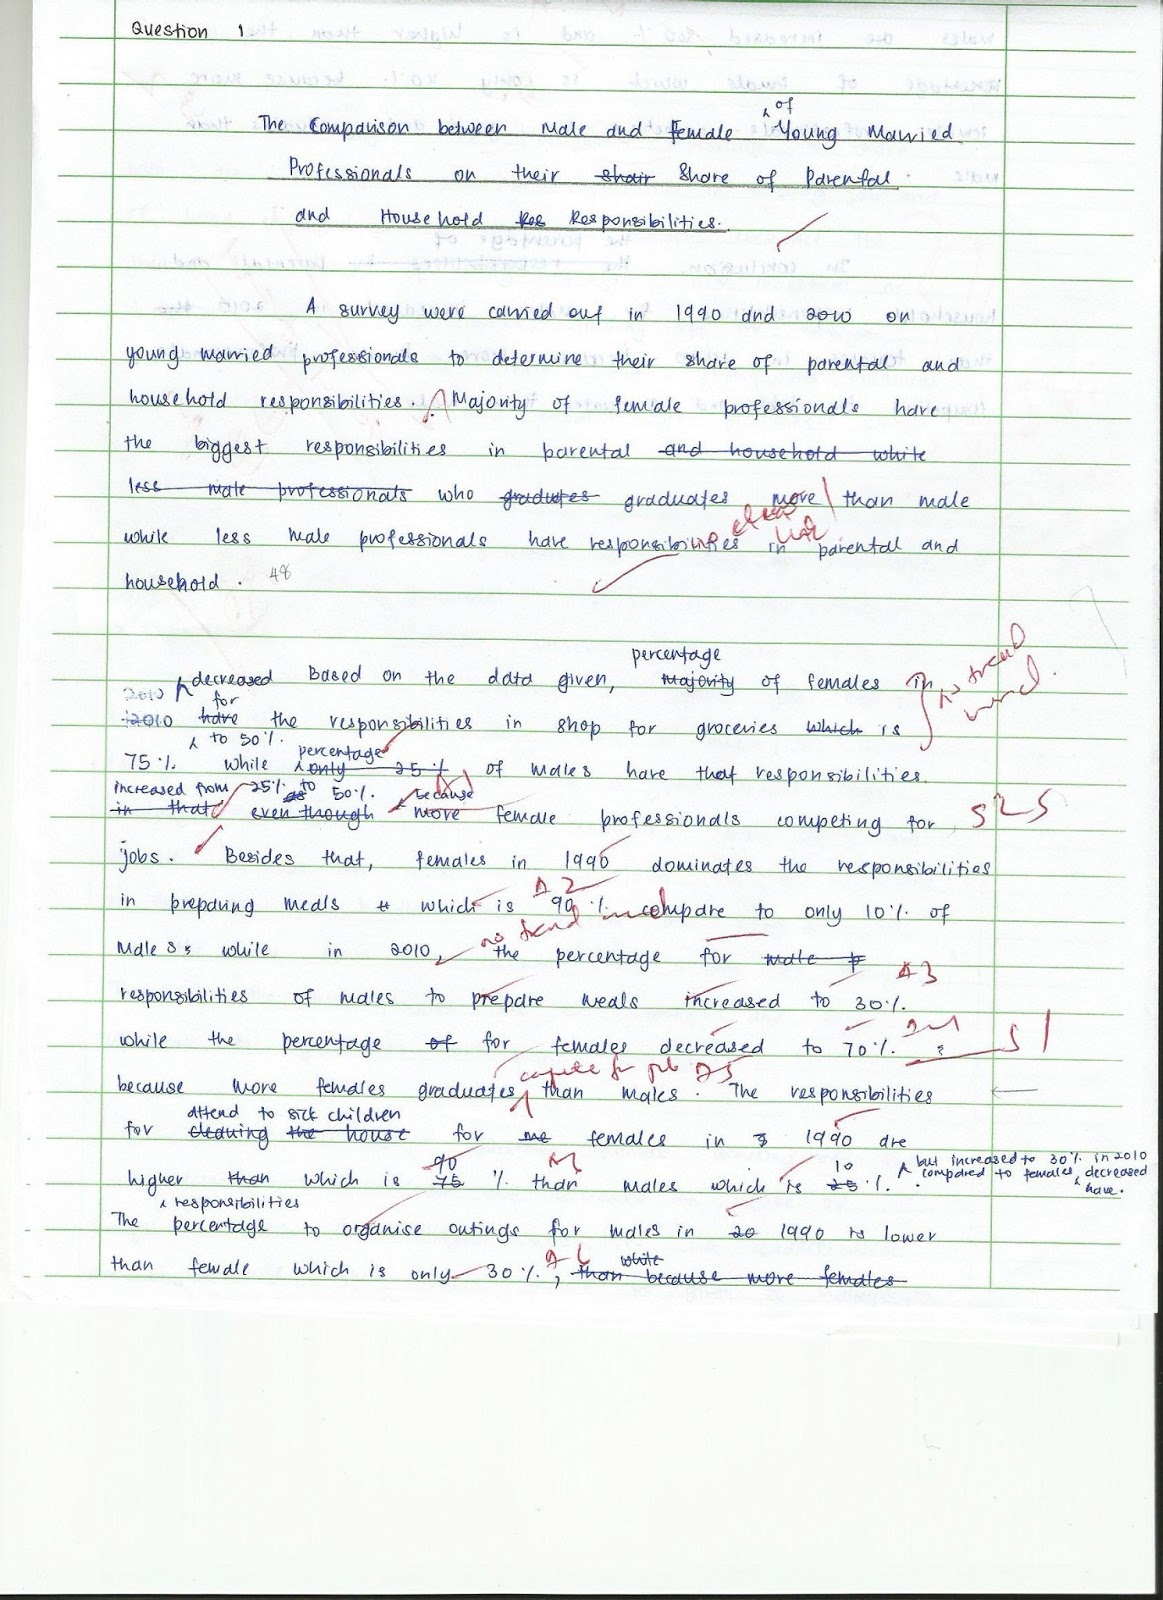 Question 1
of
The Comparison between Male and Female ^ Young Married
Professionals on their shair Share of Parental
and Household Res Responsibilities.
A survey were carried out in 1990 and 2010 on
young married professionals to determine their share of parental and
household responsibilities. Majority of female professionals have
the biggest responsibilities in parental and household white
less male professionals who gradutes graduates more than male
while less male professionals have responsibilities in parental and
household. 48
percentage
decreased Based on the data given, Majority of females in
2010 for
i2010 have the responsibilities in shop for groceries which is
to 50%. percentage
75% while only 25% of males have that responsibilities.
increased from 25% as to 50%. because
in that even though more female professionals competing for S2S
jobs. Besides that, females in 1990 dominates the responsibilities
A2
in preparing meals which is 90% compare to only 10% of
no trend
males, while in 2010, the percentage for male
A3
responsibilities of males to prepare meals increased to 30%.
while the percentage of for females decreased to 70%. S1
compete for job A5
because more females graduates ^ than males. The responsibilities
attend to sick children
for cleaning the house for me females in 1990 are
90 10 but increased to 30% in 2010
higher than which is 75% than males which is 25%. compared to females, decreased
have.
responsibilities
The percentage to organise outings for males in 20 1990 is lower
A6 while
than female which is only 30%, than because more females